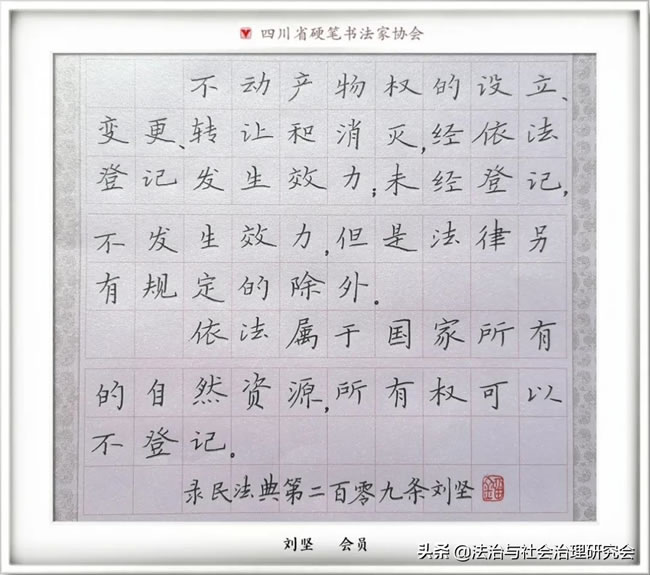 四川省硬笔书法家协会
不动产物权的设立、
变更、转让和消灭,经依法
登记发生效力;未经登记,
不发生效力,但是法律另
有规定的除外。
依法属于国家所有
的自然资源,所有权可以
不登记。
录民法典第二百零九条刘坚
刘坚 会员
头条@法治与社会治理研究会